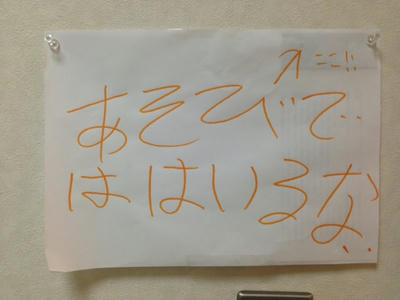 ↗ ここ!!
あそびで
ははいるな